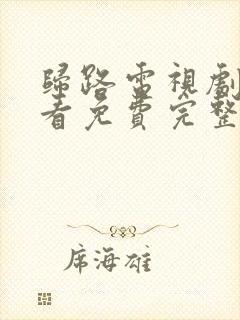 歸路電視劇
看免費完整
席海雄